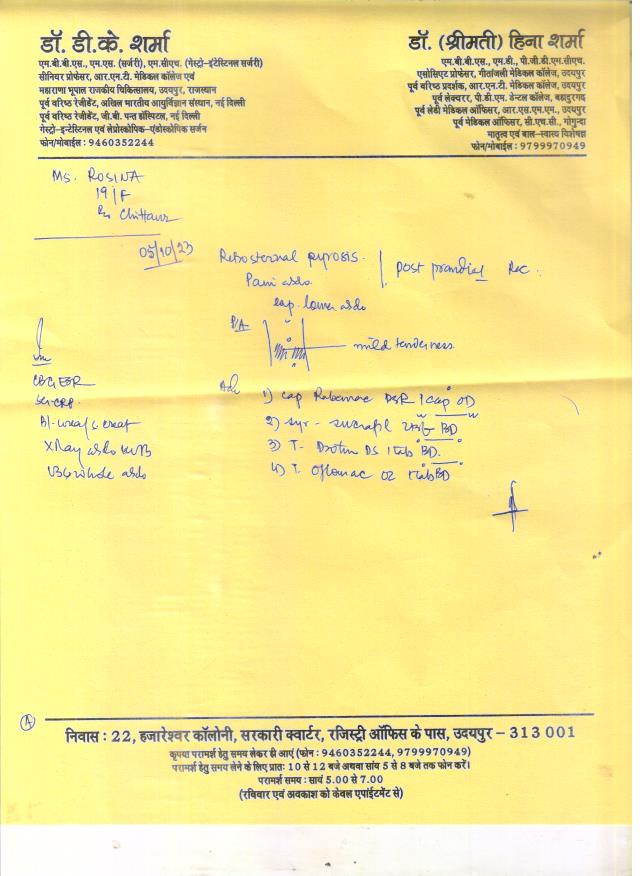 डॉ. डी.के. शर्मा
एम.बी.बी.एस., एम.एस. (सर्जरी), एम.सीएच. (गेस्ट्रो-इंटेस्टिनल सर्जरी)
सीनियर प्रोफेसर, आर.एन.टी. मेडिकल कॉलेज एवं
महाराणा भूपाल राजकीय चिकित्सालय, उदयपुर, राजस्थान
पूर्व वरिष्ठ रेजीडेंट, अखिल भारतीय आयुर्विज्ञान संस्थान, नई दिल्ली
पूर्व वरिष्ठ रेजीडेंट, जी.बी. पन्त हॉस्पिटल, नई दिल्ली
गेस्ट्रो-इन्टेस्टिनल एवं लेप्रोस्कोपिक-एंडोस्कोपिक सर्जन
फोन/मोबाईल : 9460352244
डॉ. (श्रीमती) हिना शर्मा
एम.बी.बी.एस., एम.डी., पी.जी.डी.एम.सीएच.
एसोसिएट प्रोफेसर, गीतांजली मेडिकल कॉलेज, उदयपुर
पूर्व वरिष्ठ प्रदर्शक, आर.एन.टी. मेडिकल कॉलेज, उदयपुर
पूर्व लेक्चरर, पी.डी.एम. डेन्टल कॉलेज, बहादुरगढ़
पूर्व लेडी मेडिकल ऑफिसर, आर.एस.एम.एम., उदयपुर
पूर्व मेडिकल ऑफिसर, सी.एच.सी., गोगुन्दा
मातृत्व एवं बाल-स्वास्थ्य विशेषज्ञ
फोन/मोबाईल : 9799970949
Ms. ROSINA
19/F
05/10/23
Retrosternal pyrosis. post prandial Rec.
Pain abdo.
cap. lower abdo
P/A mild tenderness
Inv
CBC ESR
Sr. CRP
Bl-urea/s creat
X Ray abdo KUB
USG whole abdo
Adv
1) cap Rabemac DSR 1 cap OD
2) syr - sucrafil BD
3) T- Drotin DS 1 tab BD.
4) T. Oflomac OZ 1 tab BD
A
निवास : 22, हजारेश्वर कॉलोनी, सरकारी क्वार्टर, रजिस्ट्री ऑफिस के पास, उदयपुर – 313 001
कृपया परामर्श हेतु समय लेकर ही आएं (फोन : 9460352244, 9799970949)
परामर्श हेतु समय लेने के लिए प्रातः 10 से 12 बजे अथवा सांय 5 से 8 बजे तक फोन करें।
परामर्श समय : सायं 5.00 से 7.00
(रविवार एवं अवकाश को केवल एपांईटमेंट से)